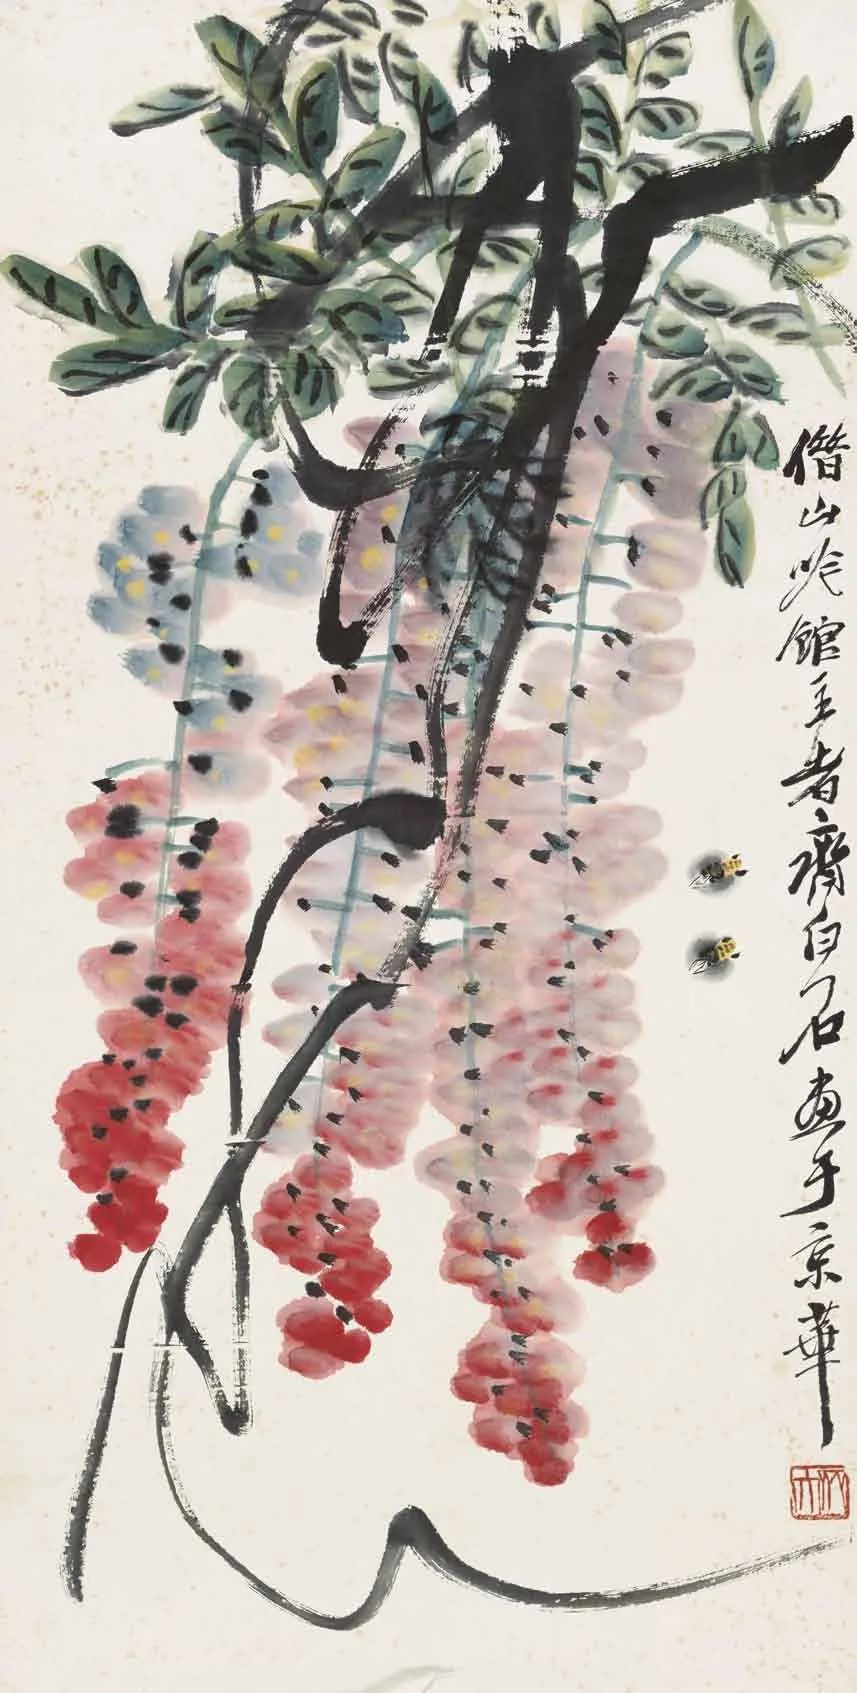 借山吟館主者齊白石畫于京華